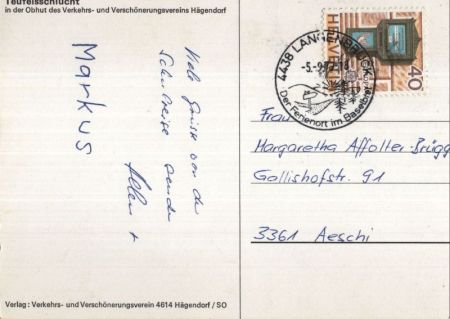 Teufelsschlucht
in der Obhut des Verkehrs- und Verschönerungsvereins Hägendorf
Viele Grüsse von der
Schulreise sendet
Allen +
Markus
Verlag: Verkehrs- und Verschönerungsverein 4614 Hägendorf / SO
4438 LANGENBRUCK
-5.-9
Der Ferienort im Baselbiet
HELVETIA
40
Frau
Margaretha Affolter-Brügg
Gallishofstr. 91
3361 Aeschi